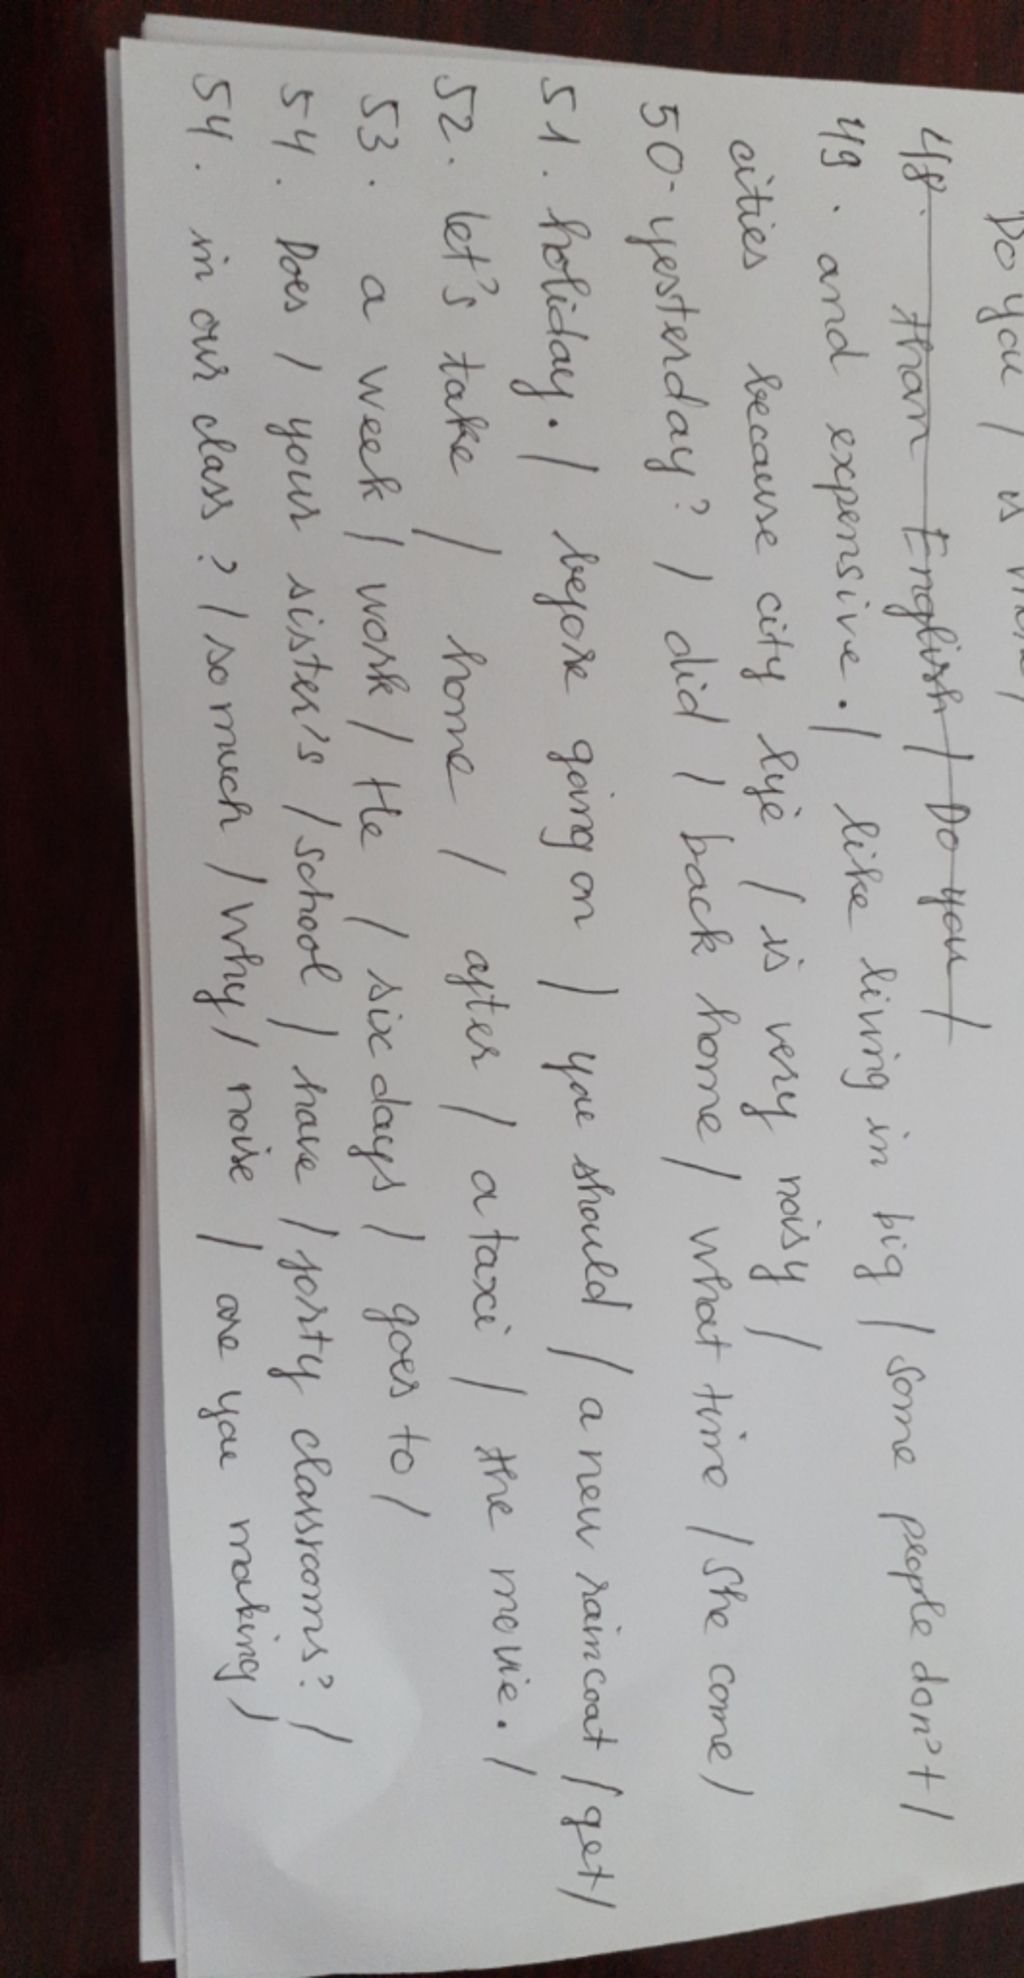 Do you / is
48. than English / Do you /
49. and expensive. / like living in big / some people don't /
cities because city life / is very noisy /
50- yesterday? / did / back home / what time / she come /
51. holiday. / before going on / you should / a new raincoat / get /
52. let's take / home / after / a taxi / the movie. /
53. a week / work / He / six days / goes to /
54. Does / your sister's / school / have / forty classrooms? /
54. in our class? / so much / why / noise / are you making /